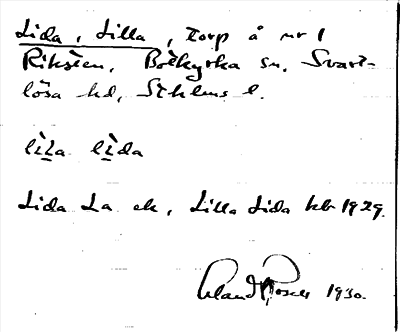 Lida, Lilla, torp å nr 1
Riksten, Botkyrka sn, Svart-
lösa hd, Sthlms l.
lìl̲a lì̲da
Lida La ek, Lilla Lida kbr 1929.
Erland Rosell 1930.